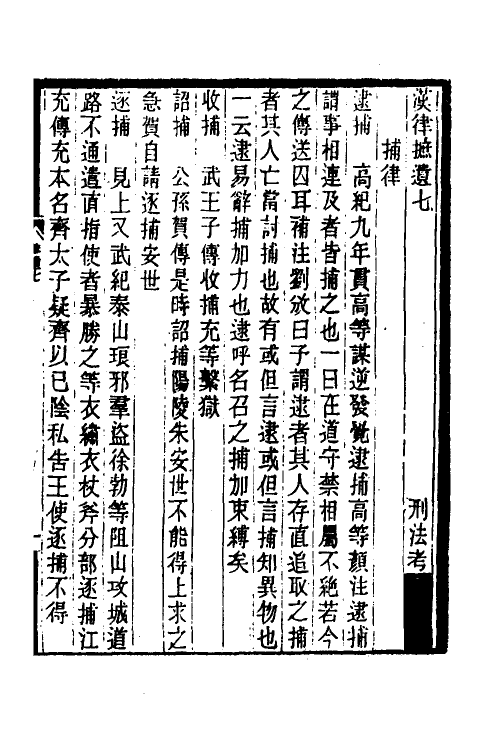 漢律摭遺七　　　　　　　　　　刑法考
捕律
逮捕　高紀九年貫高等謀逆發覺逮捕高等顏注逮捕
謂事相連及者皆捕之也一曰在道守禁相屬不絕若今
之傳送囚耳補注劉攽曰予謂逮者其人存直追取之捕
者其人亡當討捕也故有或但言逮或但言捕知異物也
一云逮易辭捕加力也逮呼名召之捕加束縛矣
收捕　武王子傳收捕充等繫獄
詔捕　公孫賀傳是時詔捕陽陵朱安世不能得上求之
急賀自請逐捕安世
逐捕　見上又武紀泰山琅邪羣盜徐勃等阻山攻城道
路不通遣直指使者暴勝之等衣繡衣杖斧分部逐捕江
充傳充本名齊太子疑齊以已陰私告王使逐捕不得